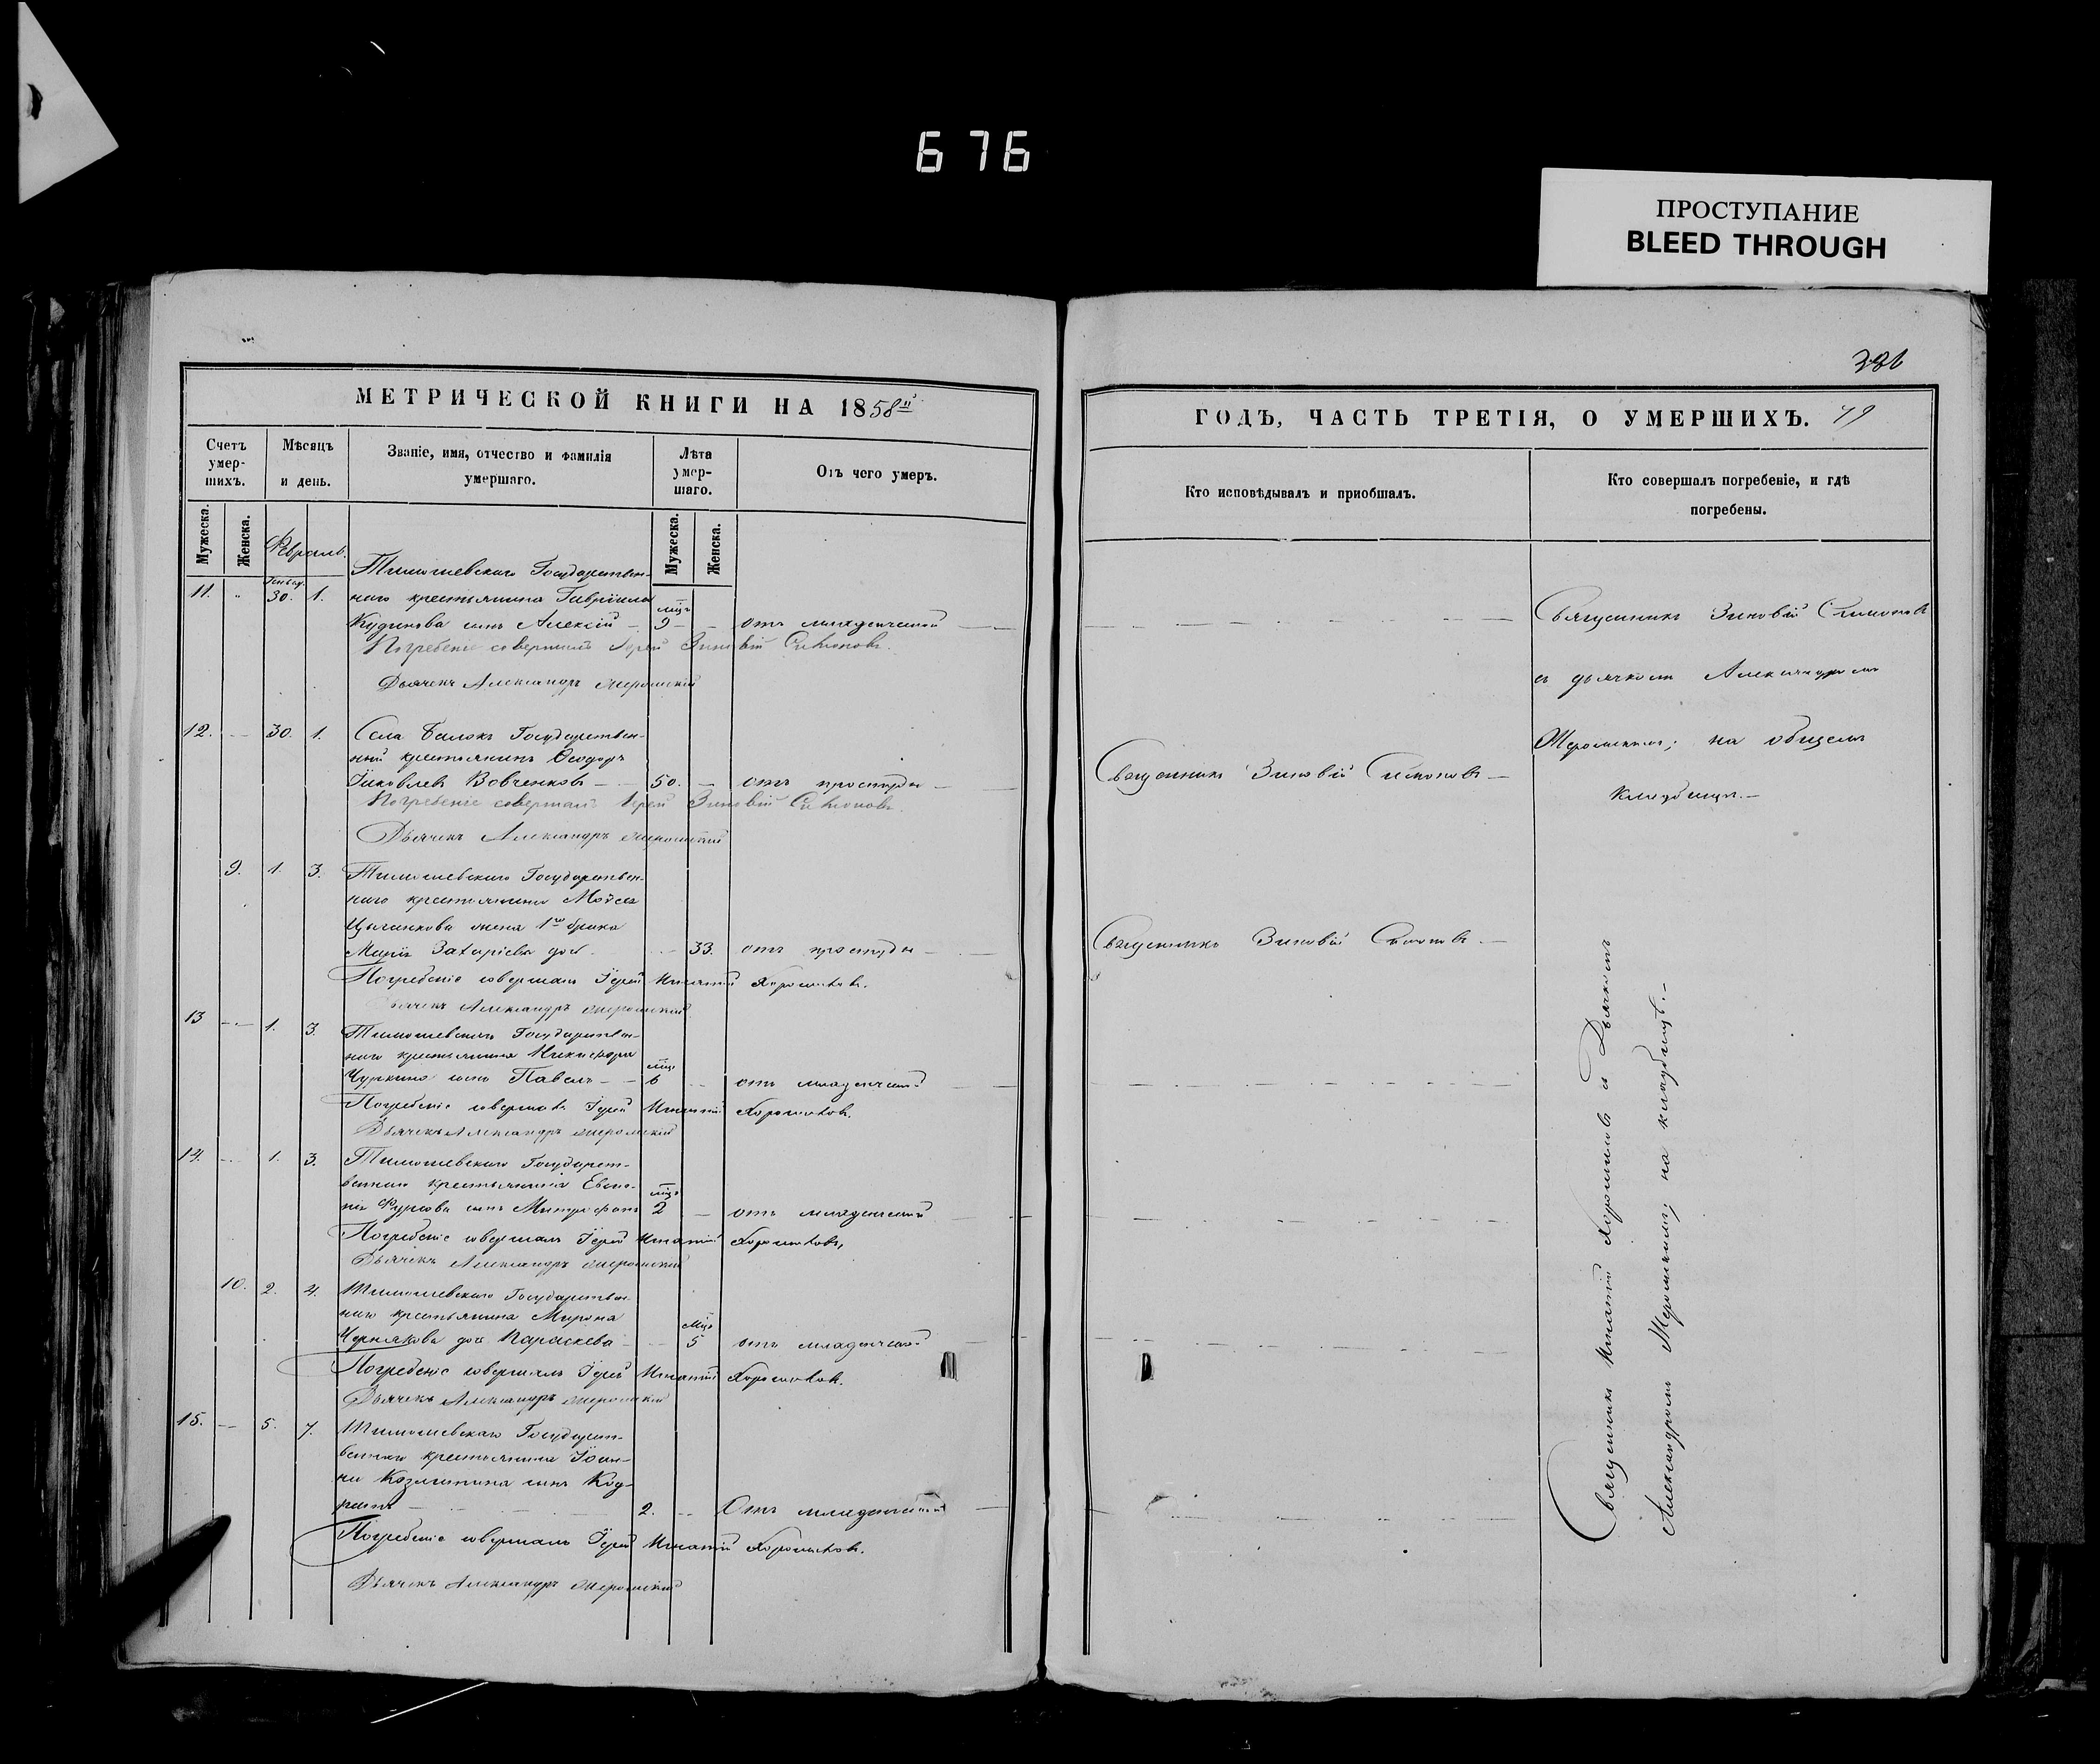 676
ПРОСТУПАНИЕ
BLEED THROUGH
МЕТРИЧЕСКОЙ КНИГИ НА 1858й
Счетъ умер-шихъ.
Мѣсяцъ и день.
Званіе, имя, отчество и фамилія умершаго.
Лѣта умер-шаго.
Отъ чего умеръ.
Мужеска. Женска. Мужеска. Женска.
Февраль.
Тимошевскаго Государствен-
11. 30. 1. наго крестьянина Гавріила
мцъ
Кудинова сынъ Алексій 9 отъ младенческой
Погребеніе совершалъ Іерей Зиновій Симоновъ.
Дьячекъ Александръ
12. 30. 1. Села Балокъ Государствен-
ный крестьянинъ Ѳеодоръ
Іяковлевъ Вовченковъ 50. отъ простуды
Погребеніе совершалъ Іерей Зиновій Симоновъ.
Дьячекъ Александръ
9. 1. 3. Тимошевскаго Государствен-
наго крестьянина Моѵсея
Цыганкова жена 1го брака
Марія Захаріева дочь 33. отъ простуды
Погребеніе совершалъ Іерей Игнатій Хорошковъ.
Дьячекъ Александръ
13 1. 3. Тимошевскаго Государствен-
наго крестьянина Никифора
мцъ
Чуркина сынъ Павелъ 6 отъ младенческой
Погребеніе совершалъ Іерей Игнатій Хорошковъ.
Дьячекъ Александръ
14. 1. 3. Тимошевскаго Государст-
веннаго крестьянина
мцъ
Фурсова сынъ Митрофанъ 2 отъ младенческой
Погребеніе совершалъ Іерей Игнатій Хорошковъ,
Дьячекъ Александръ
10. 2. 4. Тимошевскаго Государствен-
наго крестьянина Мирона
мцъ
Чернякова дочь Параскева 5 отъ младенческой
Погребеніе совершалъ Іерей Игнатій Хорошковъ.
Дьячекъ Александръ
15. 5. 7. Тимошевскаго Государст-
веннаго крестьянина Іоан-
на сынъ Код-
ратъ 2. Отъ младенческой
Погребеніе совершалъ Іерей Игнатій Хорошковъ.
Дьячекъ Александръ
ГОДЪ, ЧАСТЬ ТРЕТІЯ, О УМЕРШИХЪ.
Кто исповѣдывалъ и приобщалъ.
Кто совершалъ погребеніе, и гдѣ погребены.
Священникъ Зиновій Симоновъ
съ дьячкомъ Александромъ
на общемъ
кладбищѣ.
Священникъ Зиновій Симоновъ
Священникъ Зиновій Симоновъ
Священникъ Игнатій Хорошковъ съ Дьячкомъ
Александромъ на кладбищѣ.